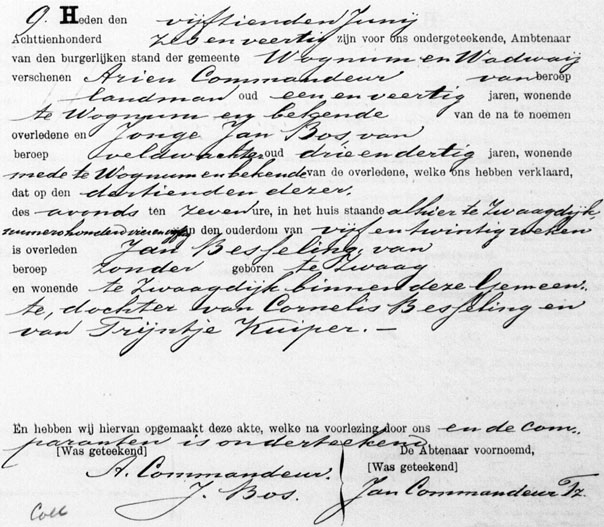 9. Heden den vijftienden Junij
Achttienhonderd zes en veertig zijn voor ons ondergeteekende, Ambtenaar
van den burgerlijken stand der gemeente Wognum en Wadwaij
verschenen Arien Commandeur van beroep
landman oud een en veertig jaren, wonende
te Wognum en bekende van de na te noemen
overledene en Jonge Jan Bos, van
beroep veldwachter oud drie en dertig jaren, wonende
mede te Wognum en bekende van de overledene, welke ons hebben verklaard,
dat op den dertienden dezer,
des avonds ten zeven ure, in het huis staande alhier te Zwaagdijk,
numero honderd vier en op den ouderdom van vijf en twintig weken
is overleden Jan Besseling, van
beroep zonder geboren te Zwaag
en wonende te Zwaagdijk binnen deze Gemeen„
te, dochter van Cornelis Besseling en
van Trijntje Kuiper. —
En hebben wij hiervan opgemaakt deze akte, welke na voorlezing door ons en de com„
paranten is onderteekend.
[Was geteekend] De Abtenaar voornoemd,
A. Commandeur. [Was geteekend]
J. Bos. Jan Commandeur Tz.
Coll